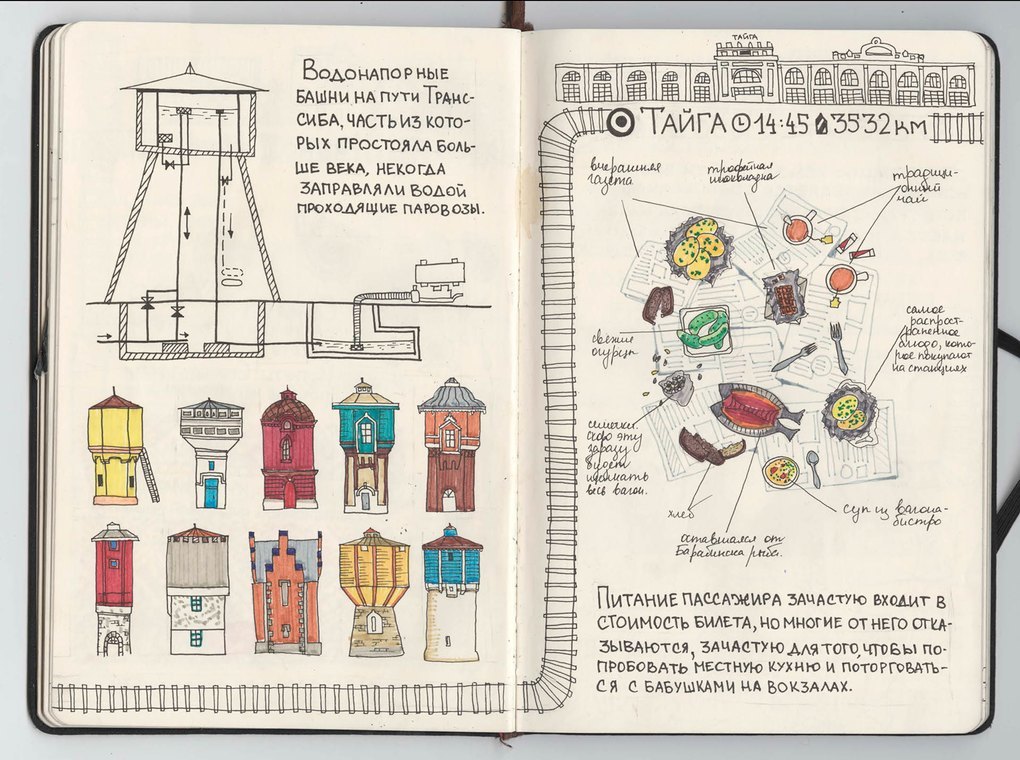 Водонапорные
башни на пути Транс-
сиба, часть из кото-
рых простояла боль-
ше века, некогда
заправляли водой
проходящие паровозы.
ТАЙГА
ВОКЗАЛ
Тайга 14:45 3532 км
вчерашняя
газета
трофейная
шоколадка
традици-
онный
чай
свежие
огурцы
самое
распрост-
раненное
блюдо, кото-
рое покупают
на станциях
семечки.
Скоро эту
заразу
будет
щелкать
весь вагон.
хлеб
оставшаяся от
Барабинска рыба.
суп из вагона-
бистро
Питание пассажира зачастую входит в
стоимость билета, но многие от него отка-
зываются, зачастую для того, чтобы по-
пробовать местную кухню и поторговать-
ся с бабушками на вокзалах.